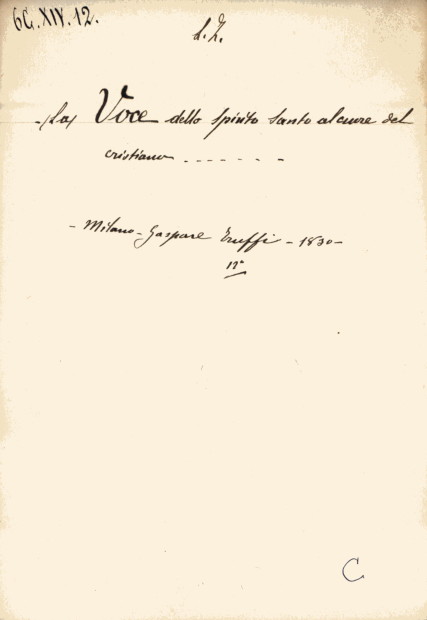 6C.XIV.12.
L.Z.
-(La) Voce dello Spirito Santo al cuore del
cristiano - - - - - - -
- Milano - Gaspare Truffi - 1830 -
12°
C